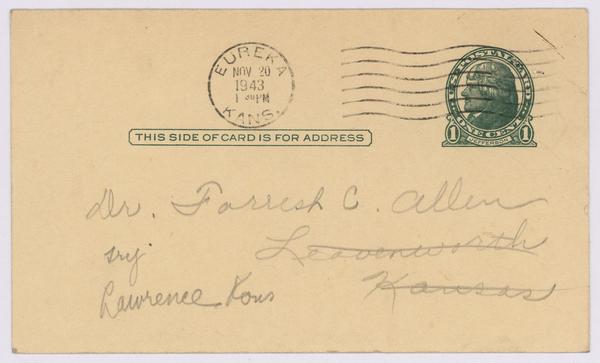 EUREKA
NOV 20
1943
1 PM
KANS.
U.S. POSTAL CARD
ONE CENT
1 JEFFERSON 1
THIS SIDE OF CARD IS FOR ADDRESS
Dr. Forresh C. Allen
Leavenworth
Kansas
try
Lawrence Kans